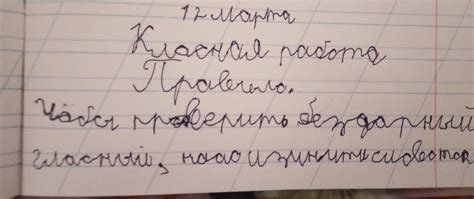 12 марта
Класная работа
Правило.
Чобы проверить бездарный
гласный, надо изинить слово так